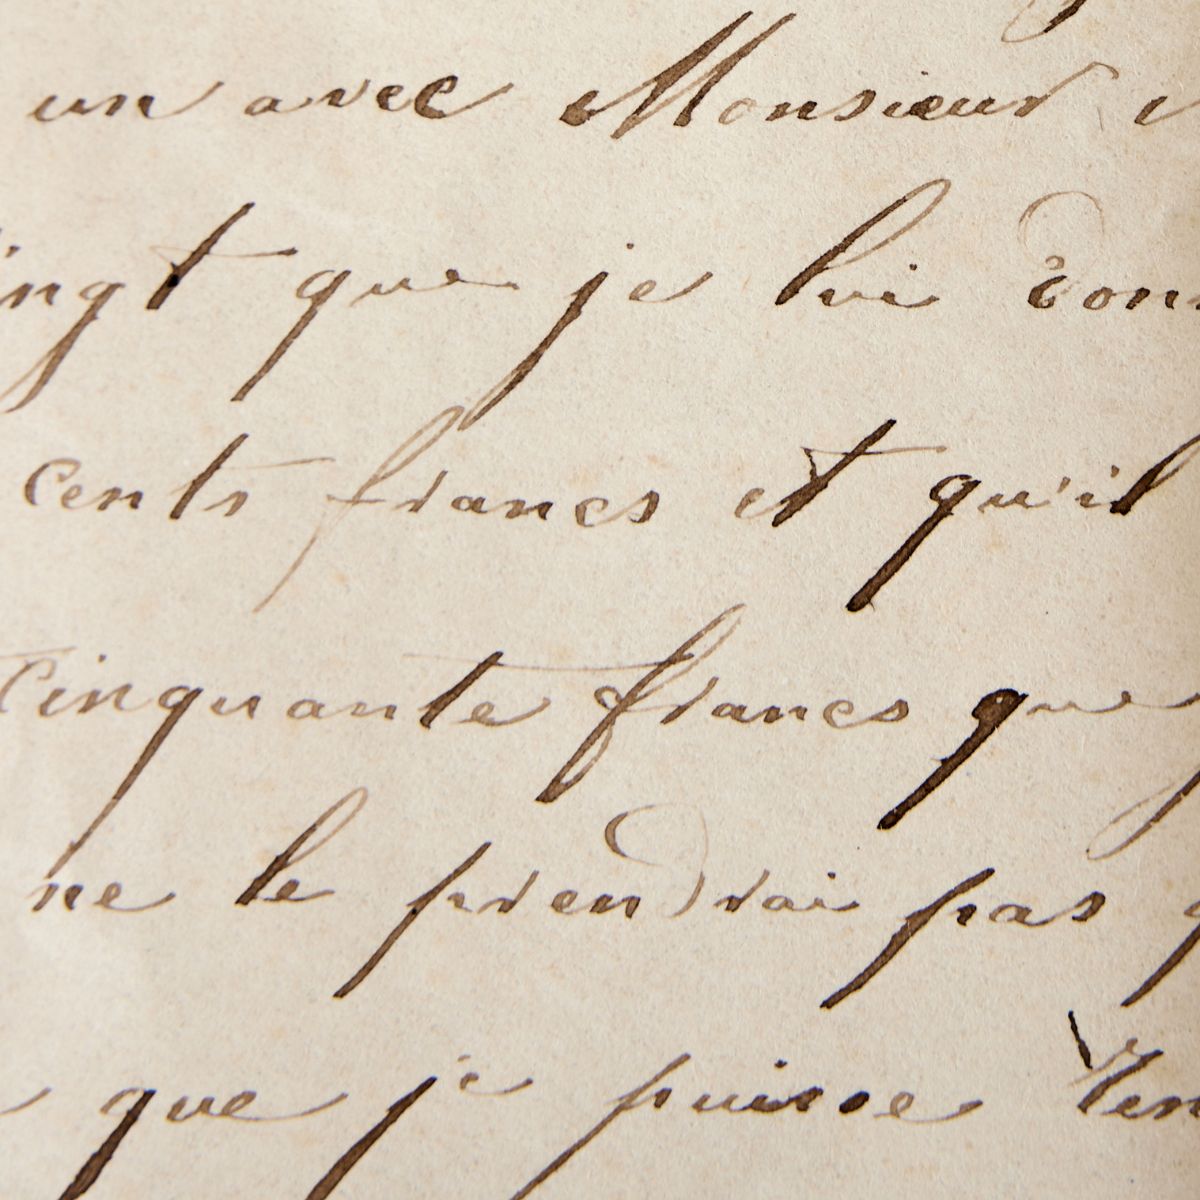 un avec Monsieur
ingt que je lui don
cents francs et qu'il
Cinquante francs que
ne le prendrai pas q
que je puisse Ven